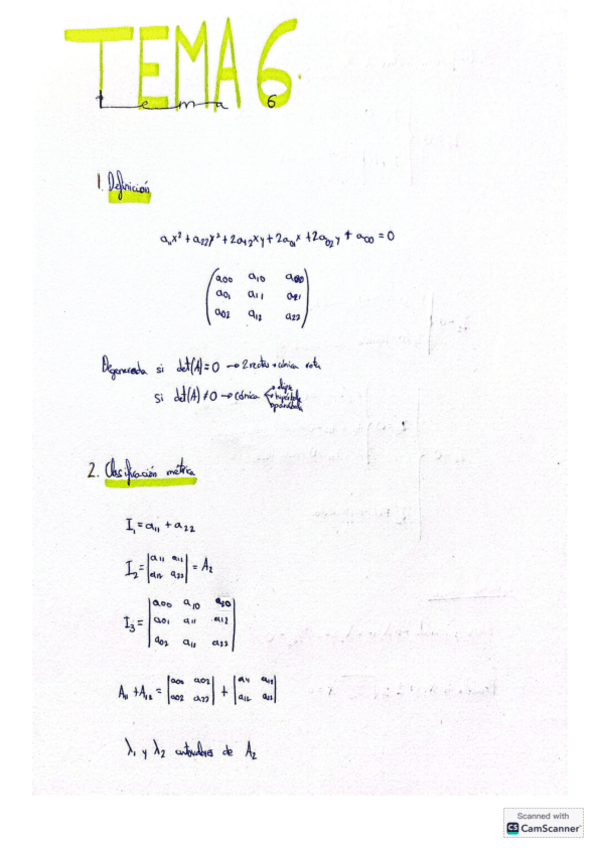 TEMA 6.
tema 6
1. Definición
a₁₁x² + a₂₂y² + 2a₁₂xy + 2a₀₁x + 2a₀₂y + a₀₀ = 0
a₀₀ a₁₀ a₀₀
a₀₁ a₁₁ a₂₁
a₀₂ a₁₂ a₂₂
Degenerada si det(A)=0 → 2 rectas → cónica rota
si det(A)≠0 → cónica
→ elipse
→ hipérbola
→ parábola
2. Clasificación métrica
I₁ = a₁₁ + a₂₂
I₂ = |a₁₁ a₁₂| = A₂
|a₁₂ a₂₂|
a₀₀ a₁₀ a₂₀
I₃ = a₀₁ a₁₁ a₁₂
a₀₂ a₁₁ a₂₂
A₁₁ + A₂₂ = |a₀₀ a₀₂| + |a₁₁ a₁₂|
|a₀₂ a₂₂| |a₁₂ a₂₂|
λ₁ y λ₂ autovalores de A₂
Scanned with
CS CamScanner